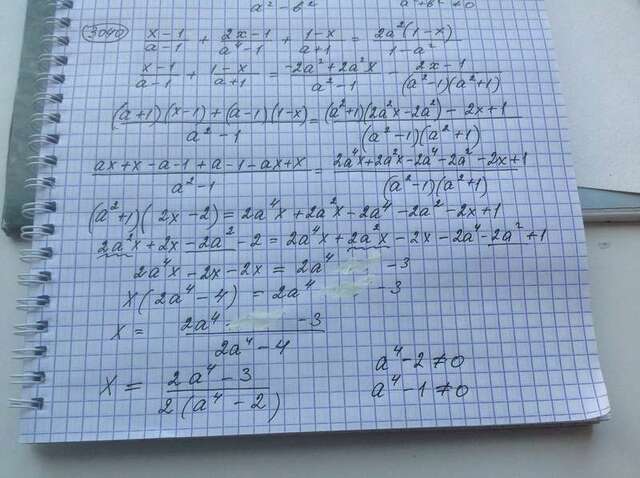 a²-b²
a²+b² ≠ 0
3040
(x-1)/(a-1) + (2x-1)/(a⁴-1) + (1-x)/(a+1) = 2a²(1-x)/(1-a²)
(x-1)/(a-1) + (1-x)/(a+1) = (-2a²+2a²x)/(a²-1) - (2x-1)/((a²-1)(a²+1))
((a+1)(x-1)+(a-1)(1-x))/(a²-1) = ((a²+1)(2a²x-2a²)-2x+1)/((a²-1)(a²+1))
(ax+x-a-1+a-1-ax+x)/(a²-1) = (2a⁴x+2a²x-2a⁴-2a²-2x+1)/((a²-1)(a²+1))
(a²+1)(2x-2) = 2a⁴x+2a²x-2a⁴-2a²-2x+1
2a²x+2x-2a²-2 = 2a⁴x+2a²x-2x-2a⁴-2a²+1
2a⁴x-2x-2x = 2a⁴ -3
x(2a⁴-4) = 2a⁴ -3
x = (2a⁴ -3)/(2a⁴-4)
x = (2a⁴-3)/(2(a⁴-2))
a⁴-2≠0
a⁴-1≠0